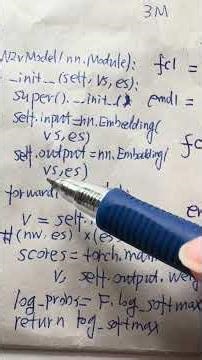 3M
N2vModel(nn.Module): fc1 =
__init__(self, vs, es):
super().__init__() emd1 =
self.input=nn.Embedding(
vs, es) fc
self.output=nn.Embedding(
vs, es)
forward(
v = self. em
#(nw, es) × (es
scores = torch.ma
v, self.output.weig
log_probs= F.log_softmax
return log_softmax